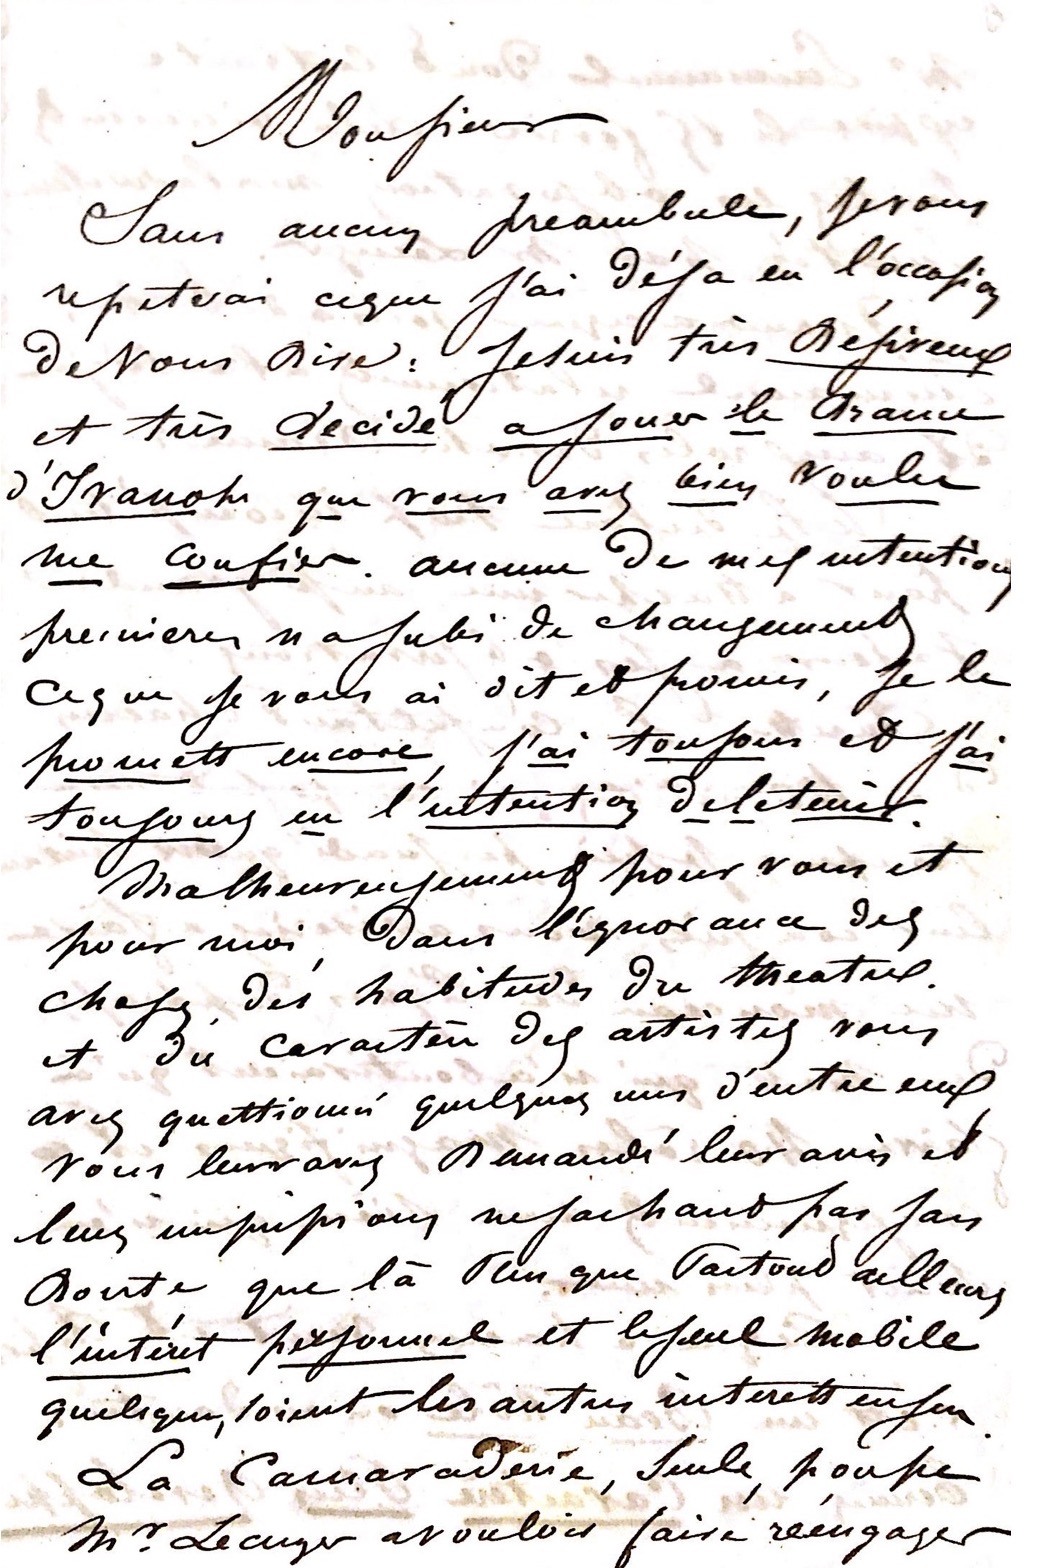 Monsieur
Sans aucun preambule, je vous
repeterai ceque j'ai déja eu l'occasion
de Vous Dire: Je suis très Désireux
et très decidé a jouer le Drame
d'Ivanohe que vous avez bien voulu
me confier. aucune de mes intentions
premieres n a subi de changement
Ceque je vous ai dit et promis, je le
promett encore, j'ai toujours et j'ai
toujours eu l'intention de le tenir.
Malheureusement pour vous et
pour moi, Dans l'ignorance des
choses, des habitudes du theatre.
et du Caractère des artistes vous
avez questtionné quelques uns d'entre eux,
Vous leur avez Demandé leur avis et
leurs impressions ne sachant pas sans
Doute que là plus que Partout ailleurs
l'intérêt personnel et le seul mobile
quelsque, soient les autres interetts en jeu.
La Camaraderie, Seule, pousse
Mr. a vouloir faire réengager